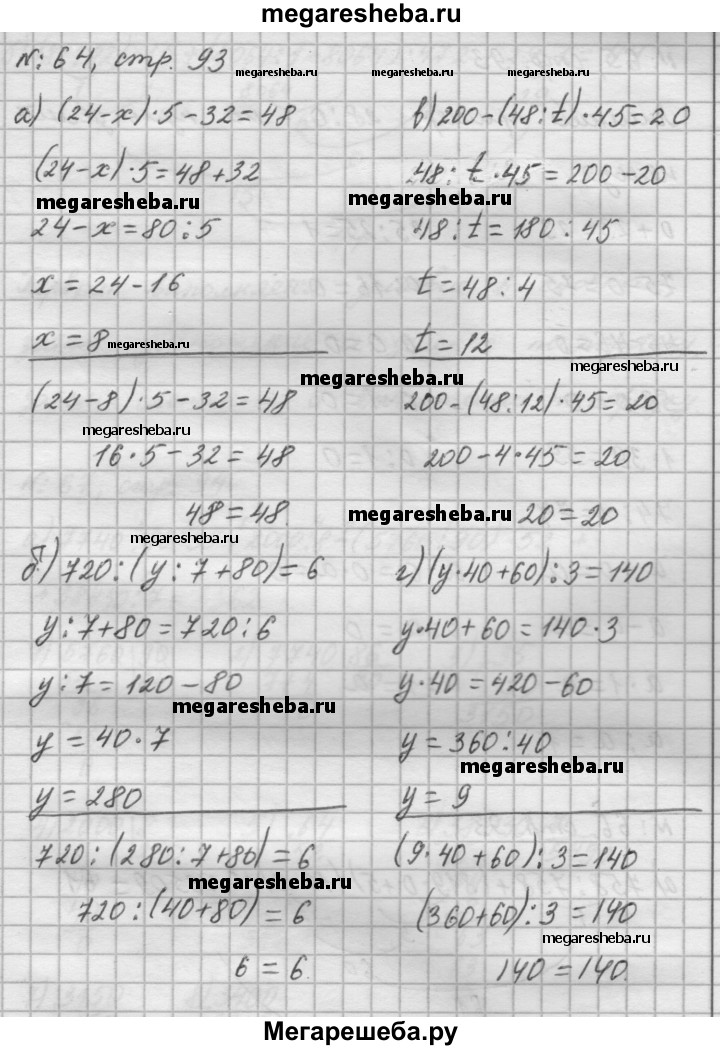 megaresheba.ru
№: 64, стр. 93
megaresheba.ru megaresheba.ru megaresheba.ru
а) (24-x)·5-32=48
(24-x)·5=48+32
megaresheba.ru
24-x=80:5
x=24-16
x=8
megaresheba.ru
(24-8)·5-32=48
megaresheba.ru
16·5-32=48
48=48
megaresheba.ru
б) 720:(y:7+80)=6
y:7+80=720:6
y:7=120-80
megaresheba.ru
y=40·7
y=280
720:(280:7+80)=6
megaresheba.ru
720:(40+80)=6
6=6.
в) 200-(48:t)·45=20
48:t·45=200-20
megaresheba.ru
48:t=180:45
t=48:4
t=12
megaresheba.ru
megaresheba.ru
200-(48:12)·45=20
200-4·45=20
megaresheba.ru
20=20
г) (y·40+60):3=140
y·40+60=140·3
y·40=420-60
y=360:40
megaresheba.ru
y=9
(9·40+60):3=140
(360+60):3=140
megaresheba.ru
140=140.
Мегарешеба.ру